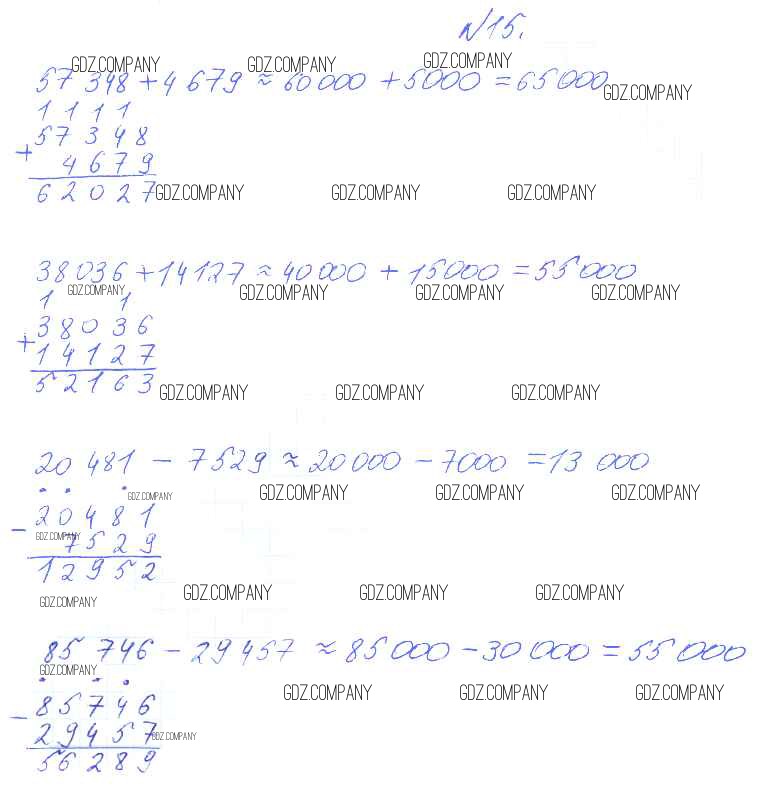 N15.
GDZ.COMPANY GDZ.COMPANY GDZ.COMPANY
57 348 + 4 679 ≈ 60 000 + 5000 = 65 000
GDZ.COMPANY
1 1 1 1
57348
+ 4679
62027
GDZ.COMPANY GDZ.COMPANY GDZ.COMPANY
38 036 + 14 127 ≈ 40 000 + 15 000 = 55 000
GDZ.COMPANY GDZ.COMPANY GDZ.COMPANY GDZ.COMPANY
1 1
38036
+ 14127
52163
GDZ.COMPANY GDZ.COMPANY GDZ.COMPANY
20 481 - 7529 ≈ 20 000 - 7000 = 13 000
. . .
GDZ.COMPANY GDZ.COMPANY GDZ.COMPANY GDZ.COMPANY
20481
GDZ.COMPANY
- 7529
12952
GDZ.COMPANY GDZ.COMPANY GDZ.COMPANY GDZ.COMPANY
85 746 - 29 457 ≈ 85 000 - 30 000 = 55 000
GDZ.COMPANY
. . .
GDZ.COMPANY GDZ.COMPANY GDZ.COMPANY
85746
- 29457
GDZ.COMPANY
56289